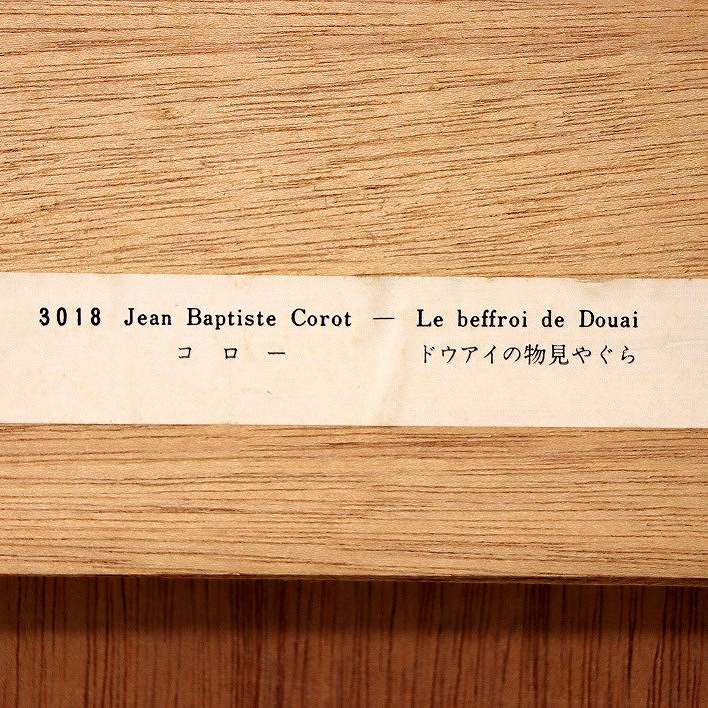 3018 Jean Baptiste Corot — Le beffroi de Douai
コロー ドウアイの物見やぐら